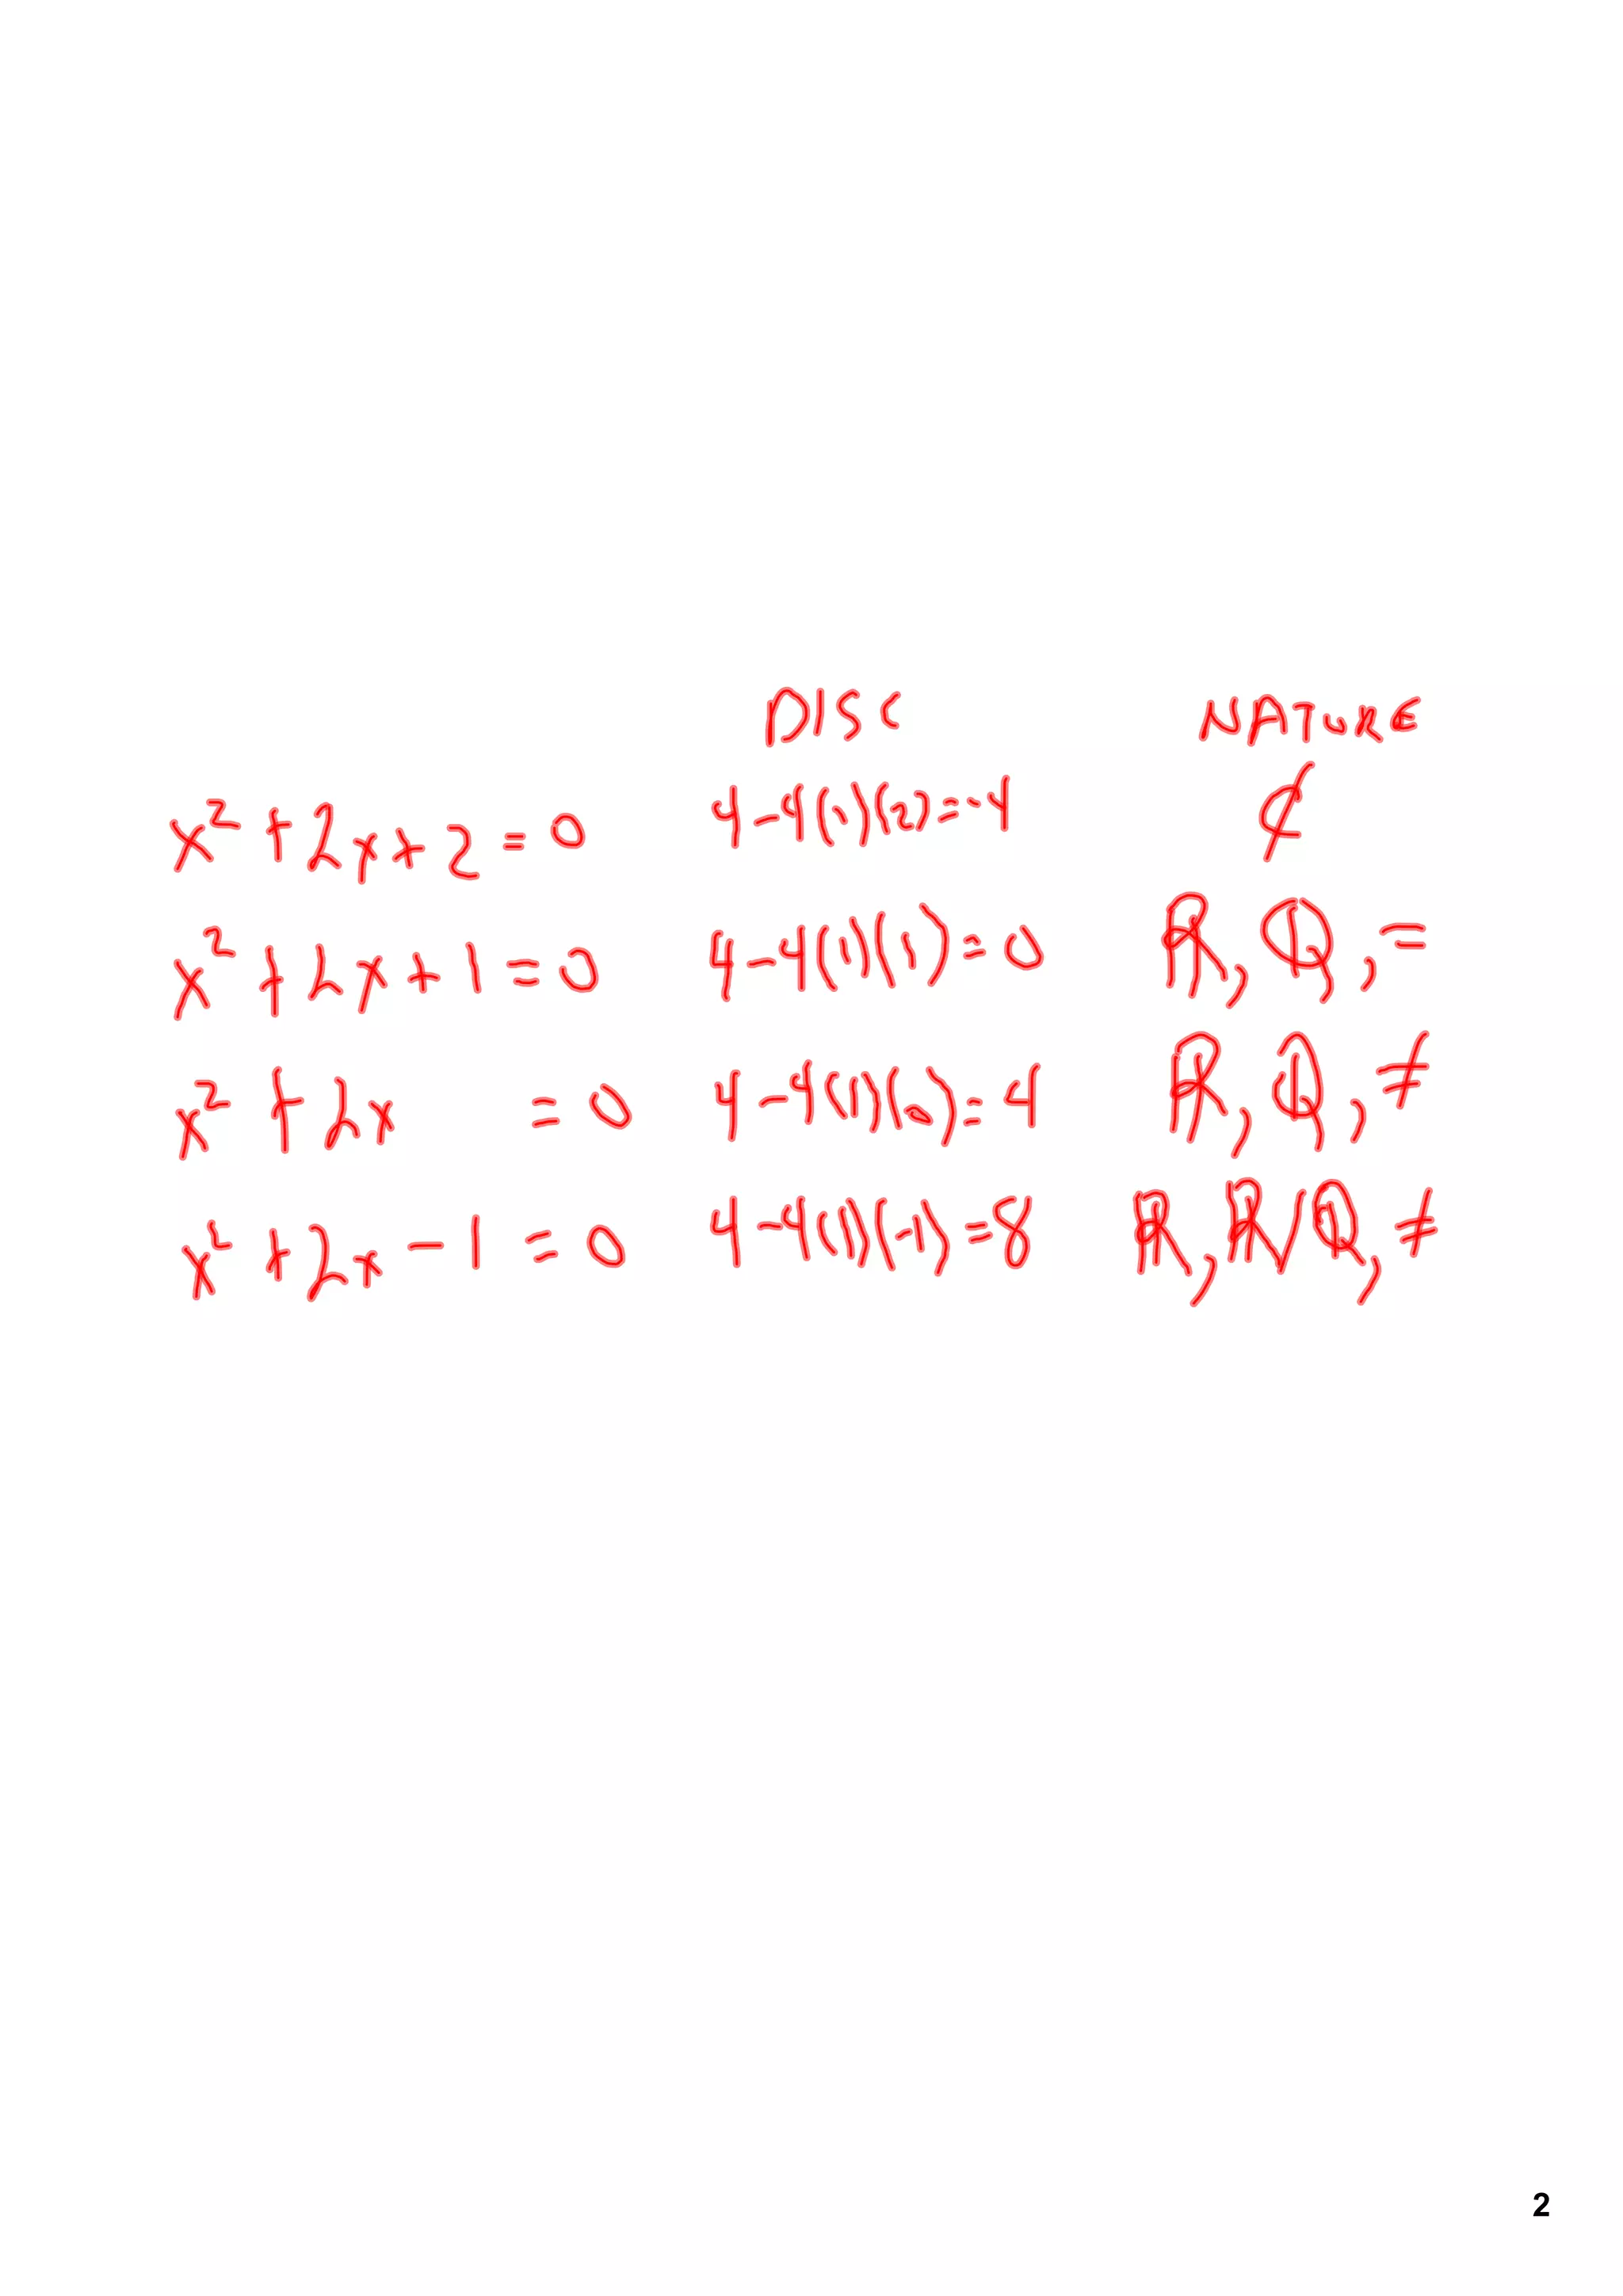 DISC NATURE
x² + 2x + 2 = 0 4-4(1)(2)=-4 ₵
x² + 2x + 1 = 0 4-4(1)(1)=0 ℝ, ℚ, =
x² + 2x = 0 4-4(1)(0)=4 ℝ, ℚ, ≠
x² + 2x - 1 = 0 4-4(1)(-1)=8 ℝ, ℝ/ℚ, ≠
2